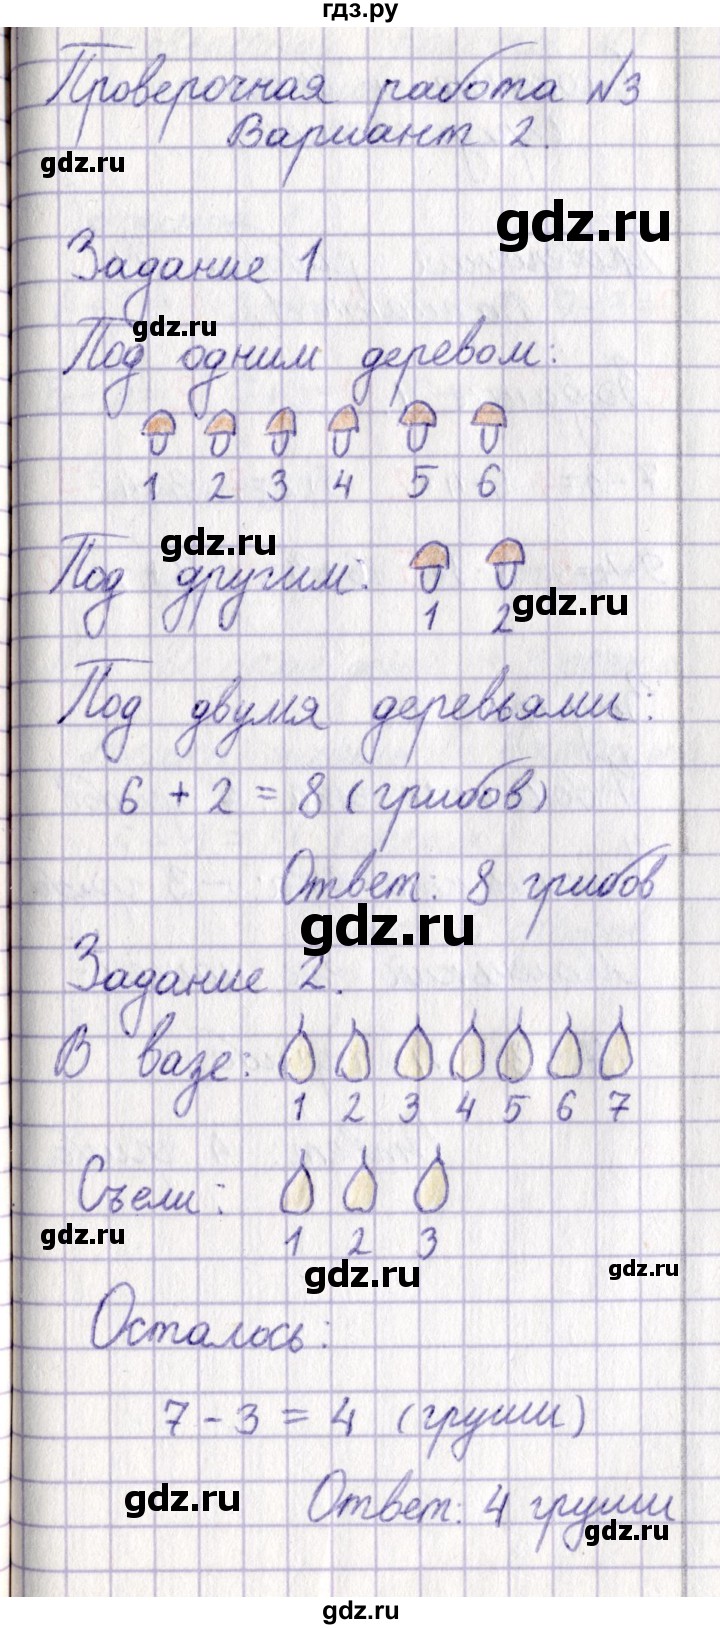 гдз.ру
Проверочная работа №3
Вариант 2.
gdz.ru
gdz.ru
Задание 1.
gdz.ru
Под одним деревом:
1 2 3 4 5 6
gdz.ru
Под другим:
gdz.ru
1 2
Под двумя деревьями:
6 + 2 = 8 (грибов)
Ответ: 8 грибов
gdz.ru
Задание 2.
В вазе:
1 2 3 4 5 6 7
Съели:
gdz.ru
1 2 3
gdz.ru
gdz.ru
Осталось:
7 - 3 = 4 (груши)
gdz.ru
Ответ: 4 груши
gdz.ru
gdz.ru